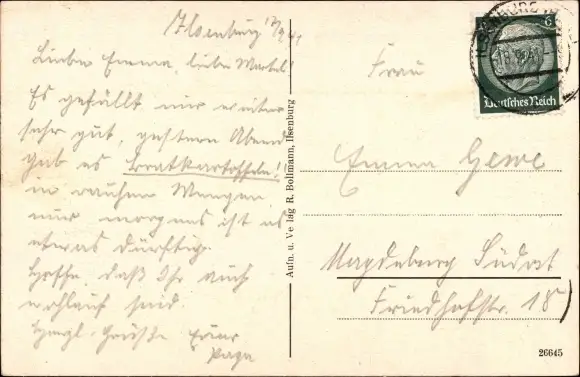 Ilsenburg 17/9.41
Liebe Emma, liebe Mutti!
Es gefällt mir weiter
sehr gut, gestern Abend
gab es Bratkartoffeln!
in rauhen Mengen
nur morgens ist es
etwas dürftig.
Hoffe, daß Ihr auch
wohlauf seid
Herzl. Grüße Euer
Papa
Aufn. u. Verlag R. Boltmann, Ilsenburg
ILSENBURG
18.9.41
6
Deutsches Reich
Frau
Emma Gewe
Magdeburg Südost
Friedhofstr. 18
26645